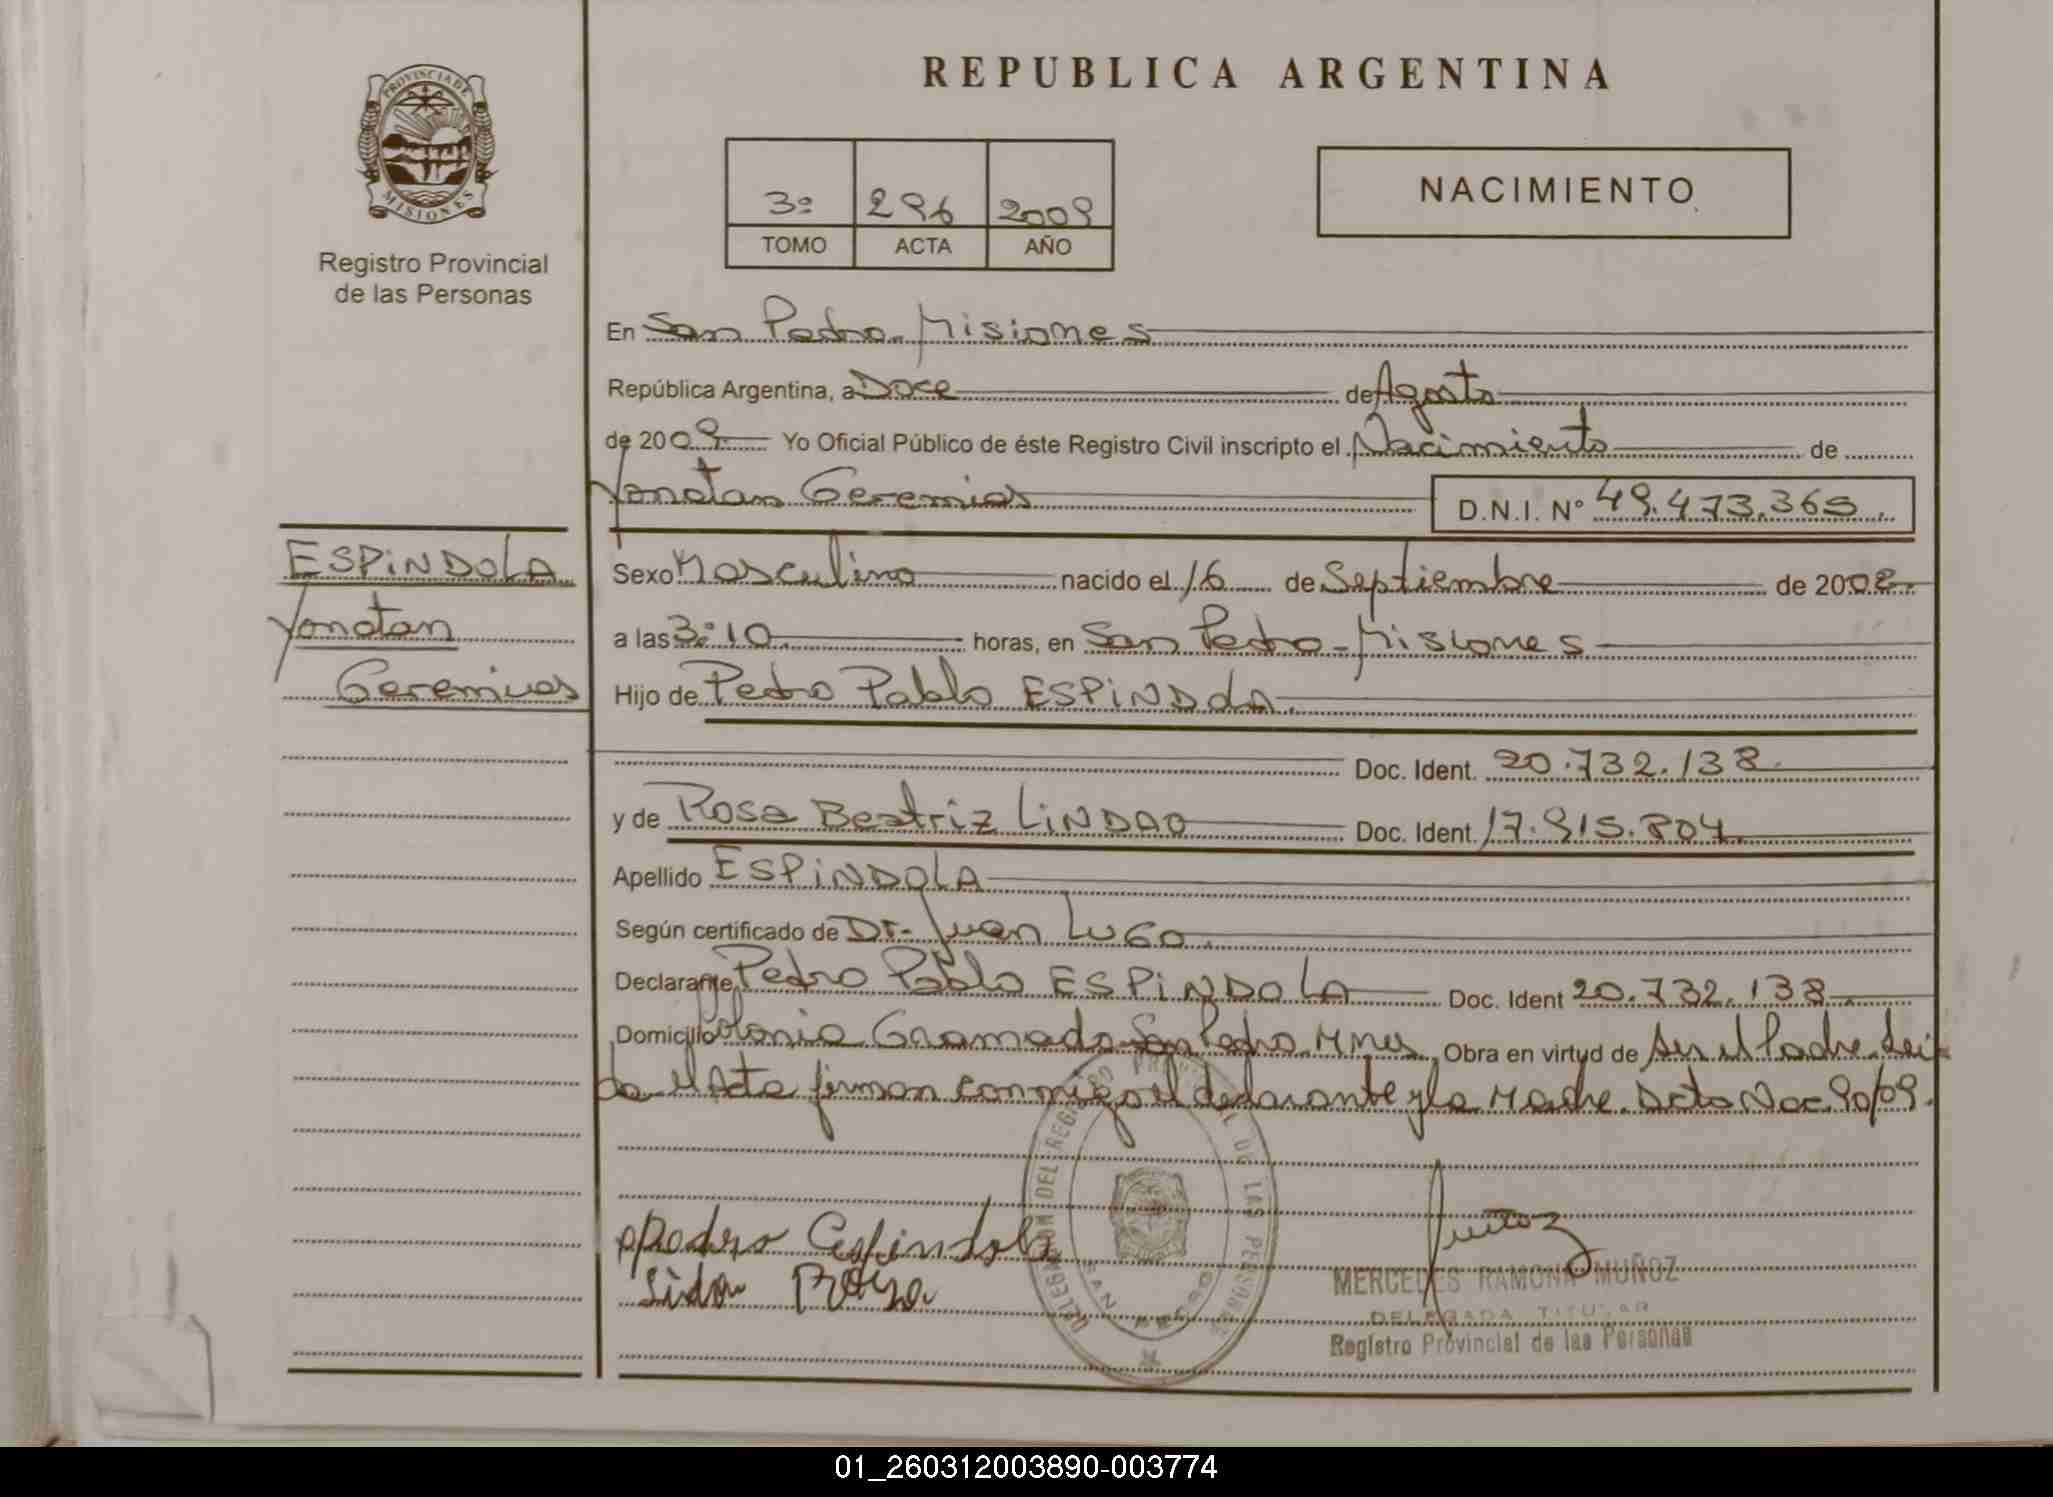 REPUBLICA ARGENTINA
PROVINCIA DE
MISIONES
Registro Provincial
de las Personas
3º 296 2009
TOMO ACTA AÑO
NACIMIENTO
En San Pedro - Misiones
República Argentina, a Doce de Agosto
de 2009 Yo Oficial Público de éste Registro Civil inscripto el Nacimiento de
Yonatan Geremias D.N.I. Nº 49.473.369.
ESPINDOLA
Yonatan
Geremias
Sexo Masculino nacido el 16 de Septiembre de 2008.
a las 3:10 horas, en San Pedro - Misiones
Hijo de Pedro Pablo ESPINDOLA.
Doc. Ident. 20.732.138.
y de Rosa Beatriz LINDAO Doc. Ident. 17.915.804
Apellido ESPINDOLA
Según certificado de Dr. Juan LUGO.
Declarante Pedro Pablo ESPINDOLA Doc. Ident 20.732.138
Domicilio Colonia Gramado San Pedro Mnes Obra en virtud de ser el Padre. Lei-
da el Acta firman conmigo el declarante y la Madre. Dcto Nac. 90/09.
DELEGACION DEL REGISTRO PROVINCIAL DE LAS PERSONAS
SAN PEDRO
Pedro Espindola
Muñoz
MERCEDES RAMONA MUÑOZ
DELEGADA TITULAR
Registro Provincial de las Personas
01_260312003890-003774